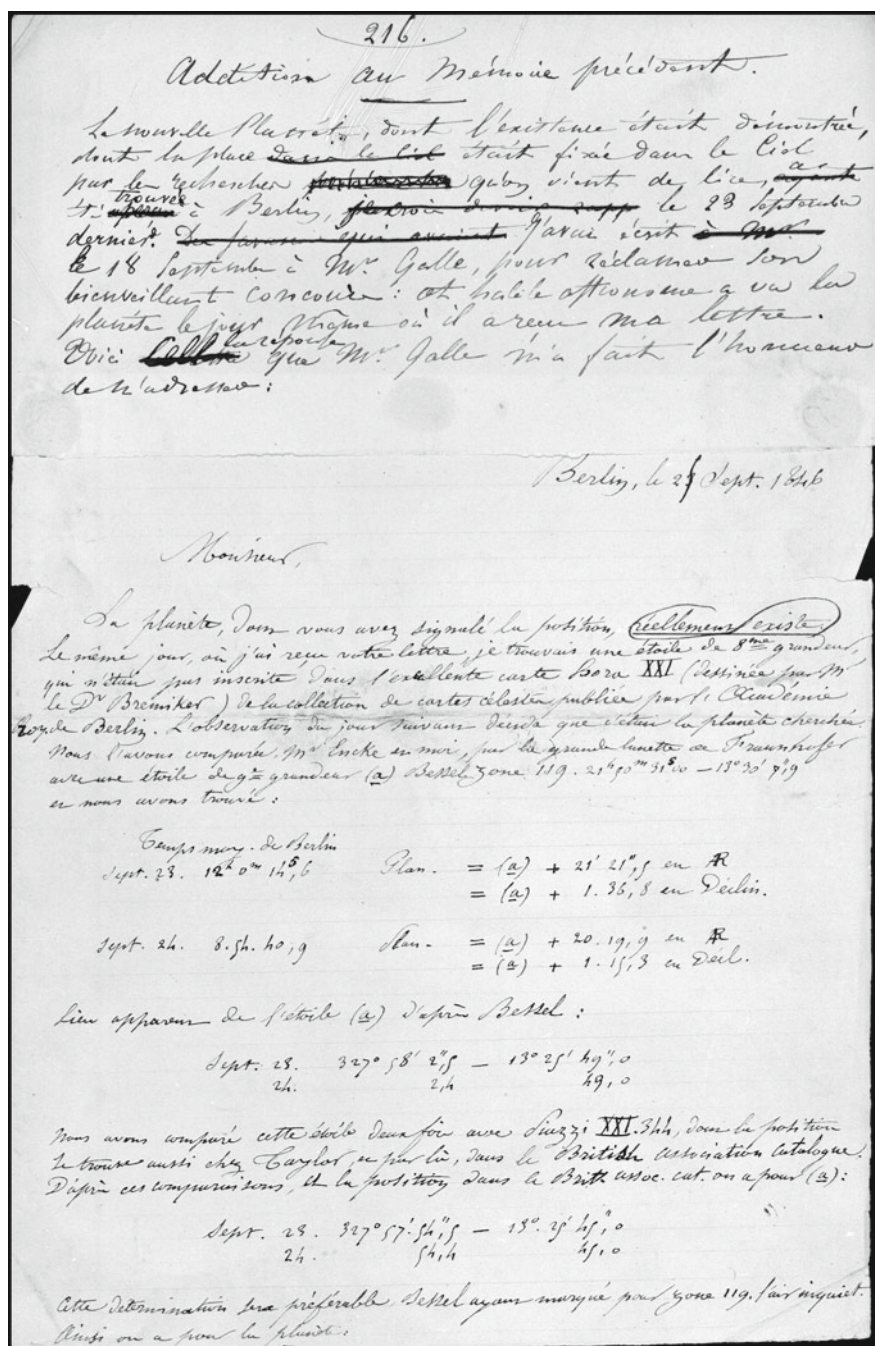 216.
Addition au Mémoire précédent.
La nouvelle Planète, dont l'existence était démontrée,
dont la place dans le Ciel était fixée dans le Ciel
par les recherches qu'on vient de lire, a
été trouvée à Berlin, le 23 Septembre
dernier. J'avais écrit à Mr.
le 18 Septembre à Mr. Galle, pour réclamer son
bienveillant concours : cet habile astronome a vu la
planète le jour même où il a reçu ma lettre.
Voici la réponse que Mr. Galle m'a fait l'honneur
de m'adresser :
Berlin, le 25 Sept. 1846
Monsieur,
La planète, dont vous avez signalé la position, réellement existe.
Le même jour, où j'ai reçu votre lettre, je trouvais une étoile de 8me grandeur,
qui n'était pas inscrite dans l'excellente carte Hora XXI (dessinée par Mr
le Dr Bremiker) de la collection de cartes célestes publiée par l'Académie
Roy. de Berlin. L'observation du jour suivant décida que c'était la planète cherchée.
Nous l'avons comparée, Mr Encke et moi, par la grande lunette de Fraunhofer
avec une étoile de 9e grandeur (a) Bessel zone 119. 21h 50m 31s,00 — 13° 30' 7",9
et nous avons trouvé :
Temps moy. de Berlin
Sept. 23. 12h 0m 14s,6 Plan. = (a) + 21' 21",5 en AR
= (a) + 1. 36,8 en Déclin.
Sept. 24. 8. 54. 40,9 Plan. = (a) + 20. 19,9 en AR
= (a) + 1. 15,3 en Décl.
Lieu apparent de l'étoile (a) d'après Bessel :
Sept. 23. 327° 58' 2",5 — 13° 25' 49",0
24. 2,4 49,0
Nous avons comparé cette étoile deux fois avec Piazzi XXI. 344, dont la position
se trouve aussi chez Taylor, et par là, dans le British association Catalogue.
D'après ces comparaisons, et la position dans le Brit. assoc. cat. on a pour (a) :
Sept. 23. 327° 57'. 54",5 — 13°. 25' 45",0
24. 54,4 45,0
Cette détermination sera préférable, Bessel ayant marqué pour zone 119. l'air inquiet.
Ainsi on a pour la planète :